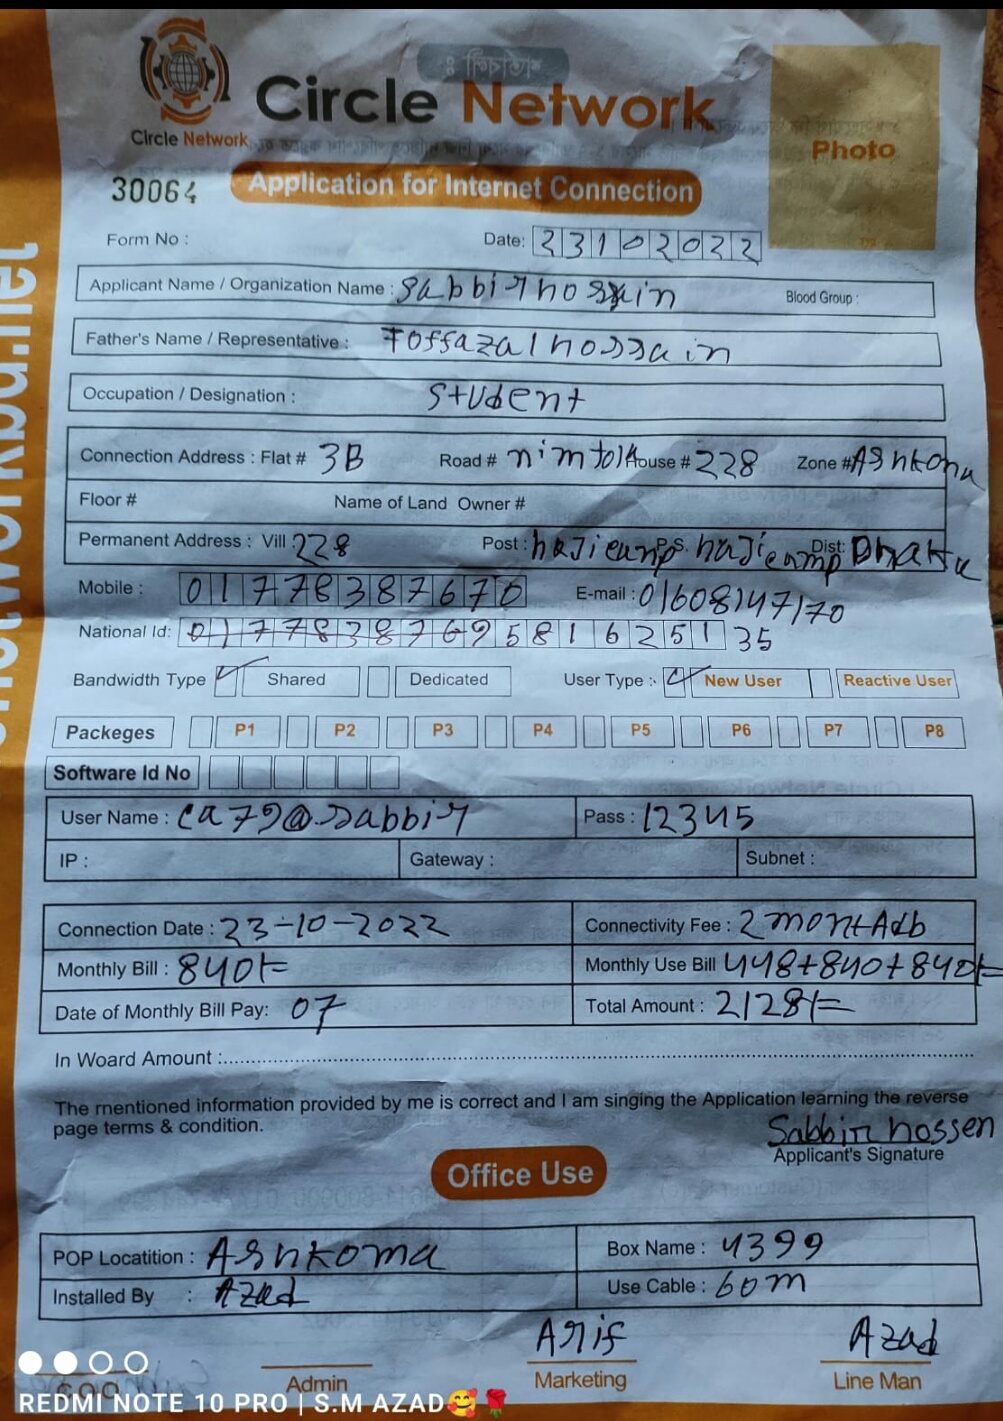 Circle Network
Circle Network
Photo
30064
Application for Internet Connection
Form No :
Date: 23102022
Applicant Name / Organization Name : Sabbir hossain
Blood Group :
Father's Name / Representative : Toffazal hossain
Occupation / Designation : Student
Connection Address : Flat # 3B Road # nimtola House # 228 Zone # Ashkona
Floor # Name of Land Owner #
Permanent Address : Vill 228 Post : hajicamp P.S. hajicamp Dist: Dhaka
Mobile : 01778387670 E-mail : 01608147170
National Id: 01778387695816251 35
Bandwidth Type Shared Dedicated User Type :- New User Reactive User
Packeges P1 P2 P3 P4 P5 P6 P7 P8
Software Id No
User Name : ca79@sabbir Pass : 12345
IP : Gateway : Subnet :
Connection Date : 23-10-2022 Connectivity Fee : 2 month
Monthly Bill : 840/= Monthly Use Bill 448+840+840/=
Date of Monthly Bill Pay: 07 Total Amount : 2128/=
In Woard Amount :
The mentioned information provided by me is correct and I am singing the Application learning the reverse
page terms & condition.
Sabbir hossen
Applicant's Signature
Office Use
POP Locatition : Ashkona Box Name : 4399
Installed By : Azad Use Cable : 60m
Arif Azad
Admin Marketing Line Man
REDMI NOTE 10 PRO | S.M AZAD🥰🌹